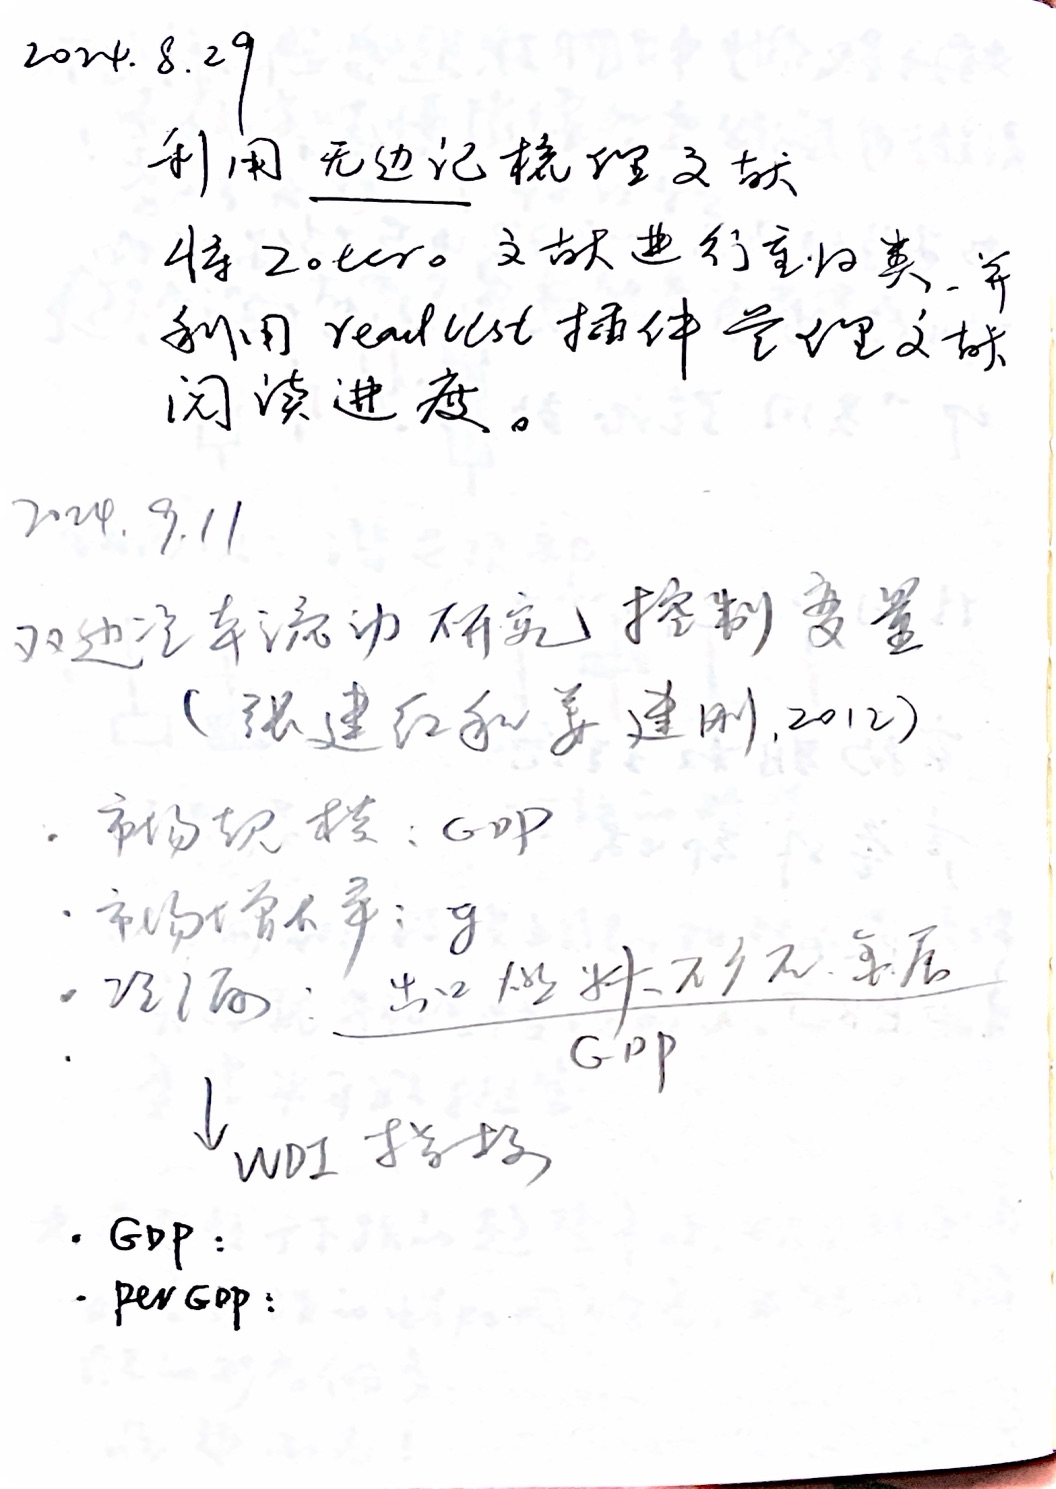 2024.8.29
利用无边记梳理文献
将Zotero 文献进行重归类、并
利用 readlist 插件管理文献
阅读进度。
2024.9.11
双边资本流动研究 控制变量
(张建红和姜建刚,2012)
· 市场规模:GDP
· 市场增长率:g
· 资源: 出口燃料、矿石、金属
GDP
·
↓ WDI 指标
· GDP:
· perGDP: